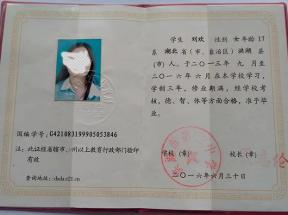 学生 刘欢 性别 女 年龄 17
系 湖北 省(市、自治区) 洪湖 县
(市)人，于二〇一三年 九 月至
二〇一六年 六 月在本学校学习，
学制三年，修业期满，经学校考
核，德、智、体等方面合格，准予毕
业。
国编学号:G421083199905053846
注：此证经省辖市、州以上教育行政部门验印
有效
学校(章) 校长(章)
二〇一六年六月三十日